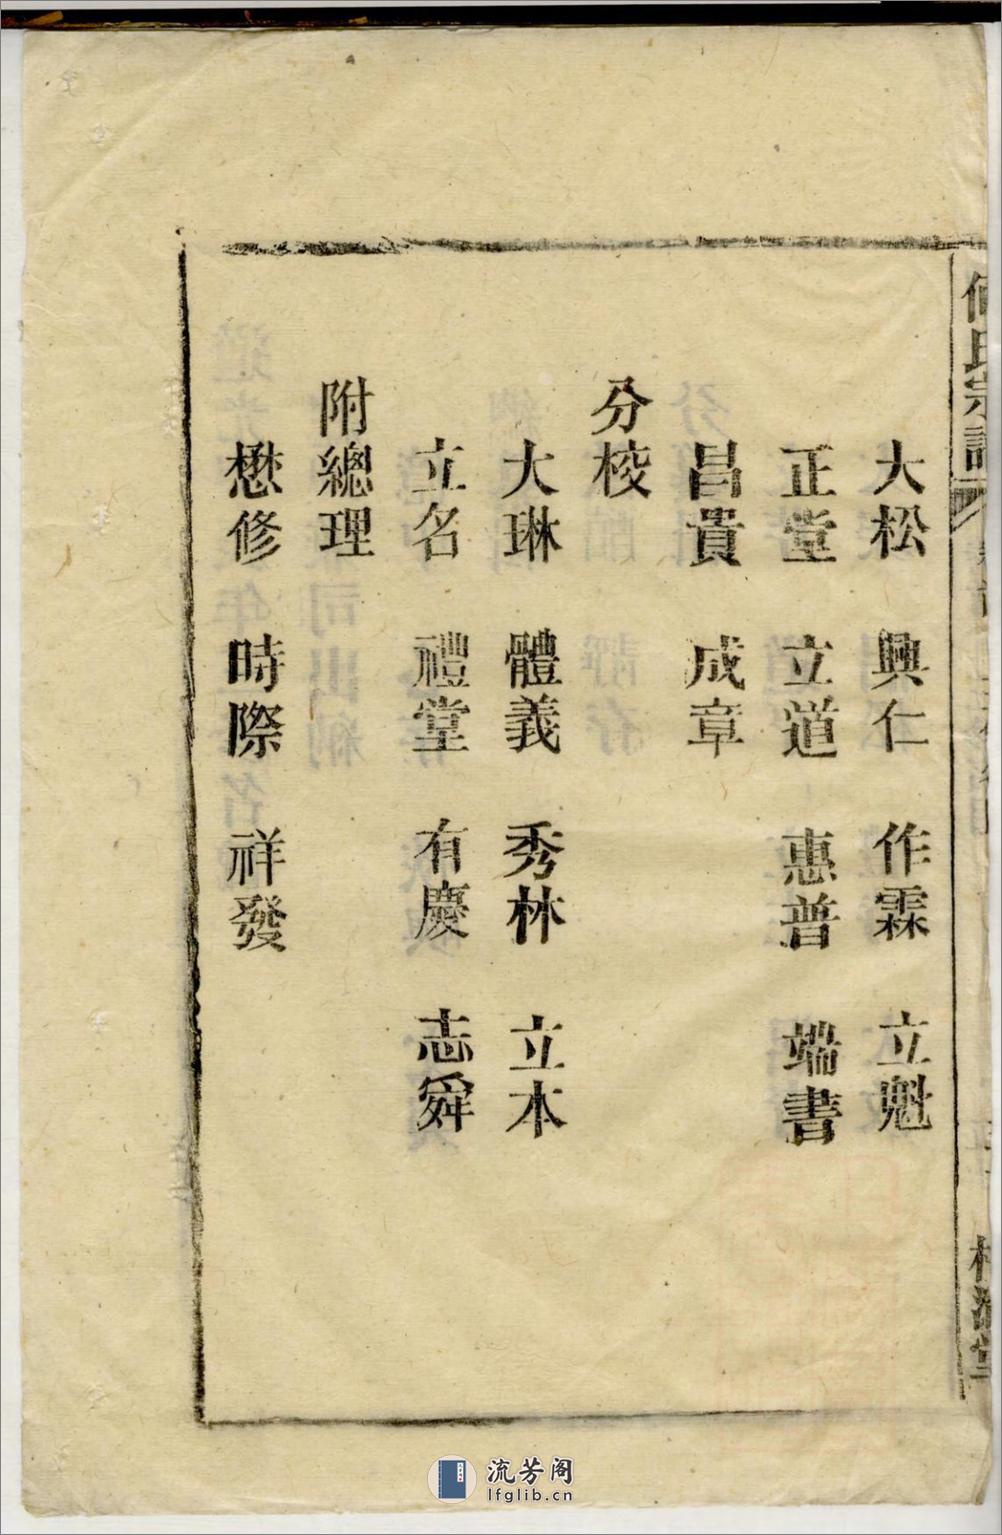 氏宗譜
大松 興仁 作霖 立魁
正堂 立道 惠普 端書
昌貴 成章
分校
大琳 體義 秀林 立本
立名 禮堂 有慶 志舜
附總理
懋修 時際 祥發
流芳阁
lfglib.cn